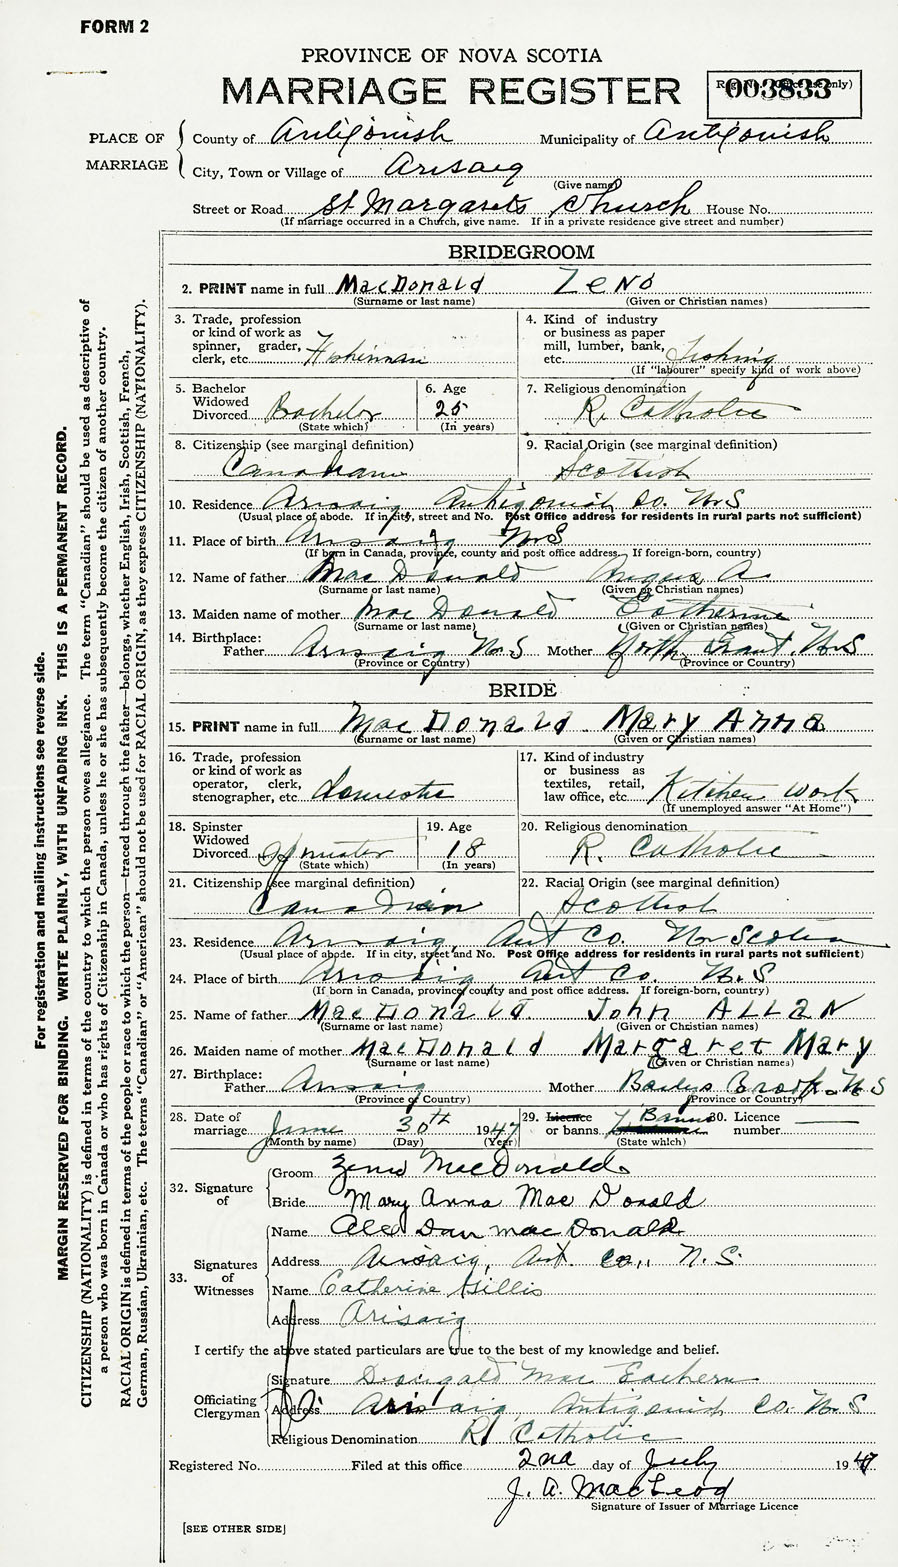 FORM 2
PROVINCE OF NOVA SCOTIA
MARRIAGE REGISTER
003833
PLACE OF MARRIAGE
County of Antigonish Municipality of Antigonish
City, Town or Village of Arisaig
(Give name)
Street or Road St. Margarets Church House No.
(If marriage occurred in a Church, give name. If in a private residence give street and number)
BRIDEGROOM
2. PRINT name in full MacDonald Zeno
(Surname or last name) (Given or Christian names)
3. Trade, profession or kind of work as spinner, grader, clerk, etc. Fisherman
4. Kind of industry or business as paper mill, lumber, bank, etc. Fishing
(If "labourer" specify kind of work above)
5. Bachelor Widowed Divorced Bachelor
(State which)
6. Age 25
(In years)
7. Religious denomination R. Catholic
8. Citizenship (see marginal definition) Canadian
9. Racial Origin (see marginal definition) Scottish
10. Residence Arisaig Antigonish Co. N.S
(Usual place of abode. If in city, street and No. Post Office address for residents in rural parts not sufficient)
11. Place of birth Arisaig N.S
(If born in Canada, province, county and post office address. If foreign-born, country)
12. Name of father Mac Donald Angus A
(Surname or last name) (Given or Christian names)
13. Maiden name of mother Mac Donald Catherine
(Surname or last name) (Given or Christian names)
14. Birthplace: Father Arisaig N.S Mother North Grant. N.S
(Province or Country) (Province or Country)
BRIDE
15. PRINT name in full MacDonald. Mary Anna
(Surname or last name) (Given or Christian names)
16. Trade, profession or kind of work as operator, clerk, stenographer, etc. domestic
17. Kind of industry or business as textiles, retail, law office, etc. Kitchen work
(If unemployed answer "At Home")
18. Spinster Widowed Divorced Spinster
(State which)
19. Age 18
(In years)
20. Religious denomination R. Catholic
21. Citizenship (see marginal definition) Canadian
22. Racial Origin (see marginal definition) Scottish
23. Residence Arisaig, Ant Co. N. Scotia
(Usual place of abode. If in city, street and No. Post Office address for residents in rural parts not sufficient)
24. Place of birth Arisaig Ant Co. N.S
(If born in Canada, province, county and post office address. If foreign-born, country)
25. Name of father MacDonald. John ALLAN
(Surname or last name) (Given or Christian names)
26. Maiden name of mother MacDonald Margaret Mary
(Surname or last name) (Given or Christian names)
27. Birthplace: Father Arisaig Mother Baileys Brook, N.S
(Province or Country) (Province or Country)
28. Date of marriage June 30th 1947
(Month by name) (Day) (Year)
29. Licence or banns Banns
(State which)
30. Licence number
32. Signature of
Groom Zeno MacDonald
Bride Mary Anna Mac Donald
33. Signatures of Witnesses
Name Alex Dan MacDonald
Address Arisaig, Ant. Co., N.S.
Name Catherine Gillis
Address Arisaig
I certify the above stated particulars are true to the best of my knowledge and belief.
Officiating Clergyman
Signature Dougald Mac Eachern
Address Arisaig, Antigonish Co. N.S
Religious Denomination R. Catholic
Registered No. Filed at this office 2nd day of July 1947
J. A. MacLeod
Signature of Issuer of Marriage Licence
[SEE OTHER SIDE]
For registration and mailing instructions see reverse side.
MARGIN RESERVED FOR BINDING. WRITE PLAINLY, WITH UNFADING INK. THIS IS A PERMANENT RECORD.
CITIZENSHIP (NATIONALITY) is defined in terms of the country to which the person owes allegiance. The term "Canadian" should be used as descriptive of
a person who was born in Canada or who has rights of Citizenship in Canada, unless he or she has subsequently become the citizen of another country.
RACIAL ORIGIN is defined in terms of the people or race to which the person—traced through the father—belongs, whether English, Irish, Scottish, French,
German, Russian, Ukrainian, etc. The terms "Canadian" or "American" should not be used for RACIAL ORIGIN, as they express CITIZENSHIP (NATIONALITY).